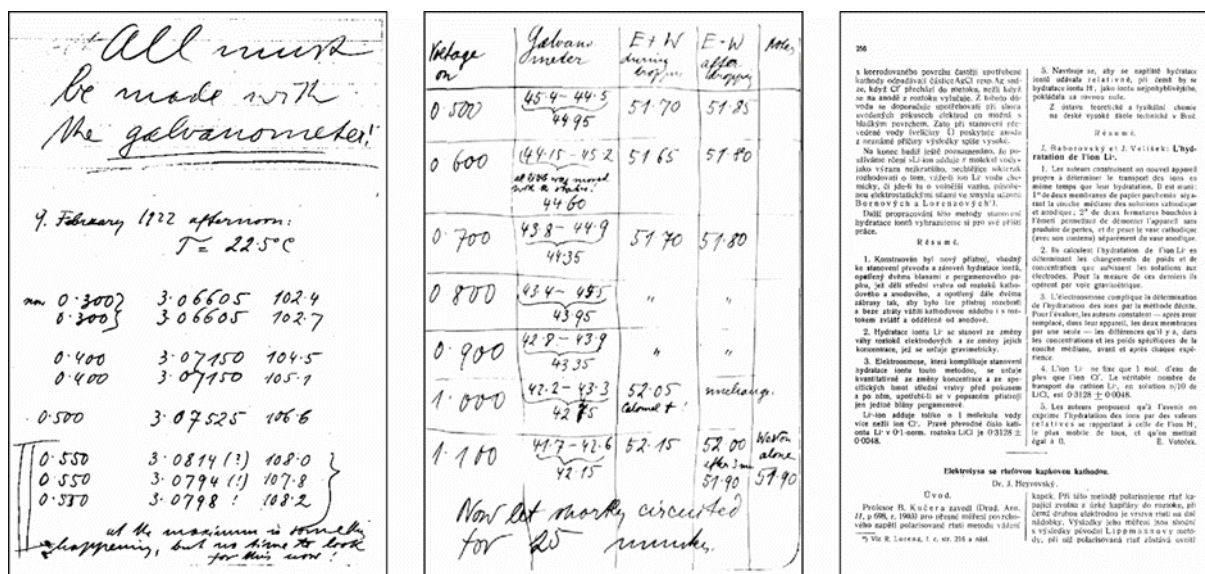 All must
be made with
the galvanometer!
9. February 1922 afternoon:
T = 22.5°C
now 0.300 3.06605 102.4
0.300 3.06605 102.7
0.400 3.07150 104.5
0.400 3.07150 105.1
0.500 3.07525 106.6
0.550 3.0814 (?) 108.0
0.550 3.0794 (!) 107.8
0.550 3.0798 ! 108.2
at the maximum is something
happening, but no time to look
for this now!
Voltage on Galvanometer E+W during dropping E-W after dropping Notes
0.500 45.4 – 44.5 51.70 51.85
44.95
0.600 (44.15 – 45.2 51.65 51.80
44.60
0.700 43.8 – 44.9 51.70 51.80
44.35
0.800 43.4 – 44.5 " "
43.95
0.900 42.8 – 43.9 " "
43.35
1.000 42.2 – 43.3 52.05 unchange.
42.75 Calomel + !
1.100 41.7 – 42.6 52.15 52.00 Weston alone
42.15 after 3 min 51.90 51.90
Now let shortly circuited
for 25 minutes.
256
s korrodovaného povrchu častěji upotřebené
kathody odpadávají částice AgCl resp. Ag snáze,
když Cl' přechází do roztoku, nežli když
se na anodě z roztoku vylučuje. Z tohoto důvodu
se doporučuje upotřebovati při shora
uvedených pokusech elektrod co možná s
hladkým povrchem. Zato při stanovení převedené
vody (veličiny ξ) poskytuje anoda
z neznámé příčiny výsledky spíše vysoké.
Na konec budiž ještě poznamenáno, že používáme
rčení »Li-ion adduje x molekul vody«
jako výrazu nejkratšího, nechtějíce nikterak
rozhodovati o tom, váže-li ion Li· vodu chemicky,
či jde-li tu o volnější vazbu, působenou
elektrostatickými silami ve smyslu názorů
Bornových a Lorenzových¹).
Další propracování této metody stanovení
hydratace iontů vyhrazujeme si pro své příští
práce.
Résumé.
1. Konstruován byl nový přístroj, vhodný
ke stanovení převodu a zároveň hydratace iontů,
opatřený dvěma blanami z pergamenového papíru,
jež dělí střední vrstvu od roztoků kathodového
a anodového, a opatřený dále dvěma
zábrany tak, aby bylo lze přístroj rozebrati
a beze ztráty vážiti kathodovou nádobu i s roztokem
zvlášť a odděleně od anodové.
2. Hydratace iontu Li· se stanoví ze změny
váhy roztoků elektrodových a ze změny jejich
koncentrace, jež se určuje gravimetricky.
3. Elektroosmose, která komplikuje stanovení
hydratace iontu touto metodou, se určuje
kvantitativně ze změny koncentrace a ze specifických
hmot střední vrstvy před pokusem
a po něm, upotřebí-li se v popsaném přístroji
jen jediné blány pergamenové.
Li-ion adduje toliko o 1 molekulu vody
více nežli ion Cl'. Pravé převodné číslo kationtu
Li· v 0·1-norm. roztoku LiCl je 0·3128 ±
0·0048.
5. Navrhuje se, aby se napříště hydratace
iontů udávala relativně, při čemž by se
hydratace iontu H·, jako iontu nejpohyblivějšího,
pokládala za rovnou nule.
Z ústavu teoretické a fysikální chemie
na české vysoké škole technické v Brně.
Résumé.
J. Baborovský et J. Velíšek: L'hydratation
de l'ion Li·.
1. Les auteurs construisent un nouvel appareil
propre à déterminer le transport des ions en
même temps que leur hydratation. Il est muni:
1° de deux membranes de papier parcheminé séparant
la couche médiane des solutions cathodique
et anodique; 2° de deux fermetures bouchées à
l'émeri permettant de démonter l'appareil sans
produire de pertes, et de peser le vase cathodique
(avec son contenu) séparément du vase anodique.
2. Ils calculent l'hydratation de l'ion Li· en
déterminant les changements de poids et de
concentration que subissent les solutions aux
électrodes. Pour la mesure de ces derniers ils
opèrent par voie gravimétrique.
3. L'électroosmose complique la détermination
de l'hydratation des ions par la méthode décrite.
Pour l'évaluer, les auteurs constatent — après avoir
remplacé, dans leur appareil, les deux membranes
par une seule — les différences qu'il y a, dans
les concentrations et les poids spécifiques de la
couche médiane, avant et après chaque expérience.
4. L'ion Li· ne fixe que 1 mol. d'eau de
plus que l'ion Cl'. Le véritable nombre de
transport du cathion Li·, en solution n/10 de
LiCl, est 0·3128 ± 0·0048.
5. Les auteurs proposent qu'à l'avenir on
exprime l'hydratation des ions par des valeurs
relatives se rapportant à celle de l'ion H·,
le plus mobile de tous, et qu'on mettrait
égal à 0. E. Votoček.
Elektrolysa se rtuťovou kapkovou kathodou.
Dr. J. Heyrovský.
Úvod.
Profesor B. Kučera zavedl (Drud. Ann.
11, p 698, r. 1903) pro přesné měření povrchového
napětí polarisované rtuti metodu vážení
kapek. Při této metodě polarisujeme rtuť kapající
zvolna z úzké kapiláry do roztoku, při
čemž druhou elektrodou je vrstva rtuti na dně
nádobky. Výsledky jeho měření jsou shodné
s výsledky původní Lippmannovy metody,
při níž polarisovaná rtuť zůstává uvnitř
¹) Viz R. Lorenz, l. c. str. 216 a násl.